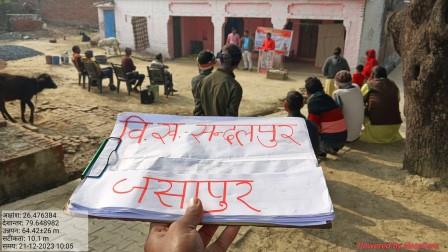 वि.स. सन्दलपुर
जसापुर
अक्षांश: 26.476384
देशान्तर: 79.648982
उन्नयन: 64.42±26 m
सटीकता: 10.1 m
समय: 21-12-2023 10:05